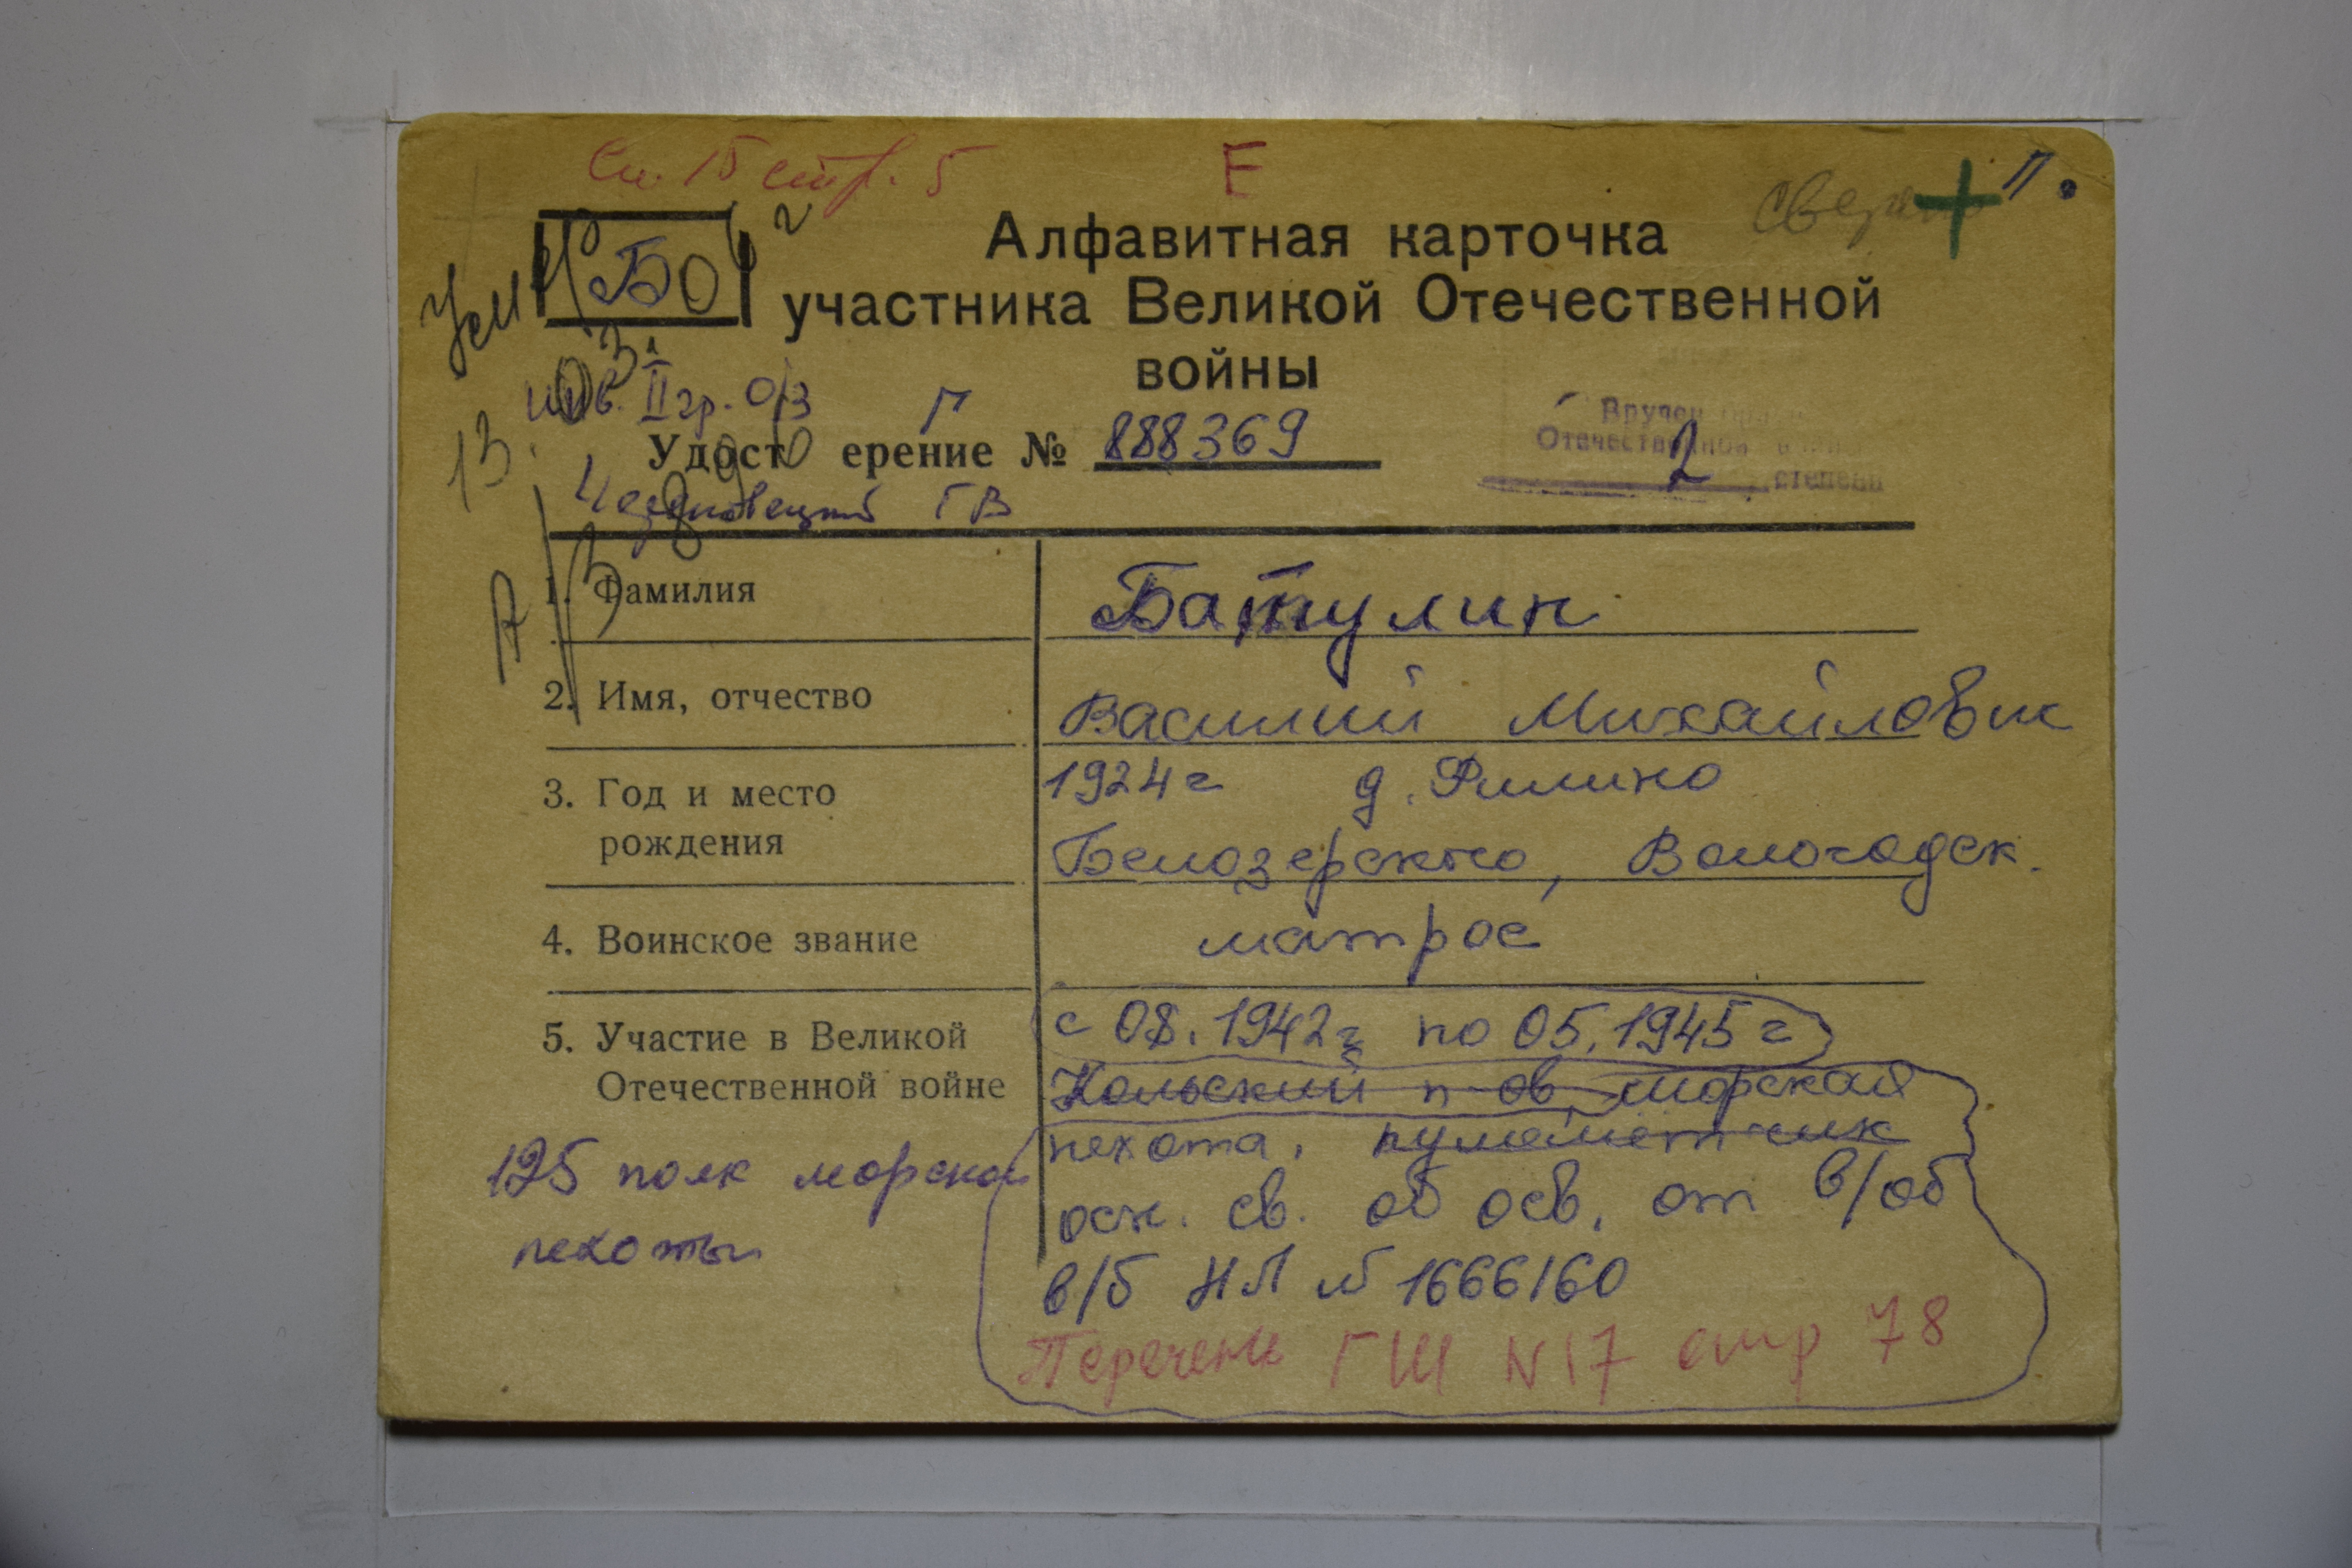 Сп. 15 стр. 5
Е
П.
БО
Алфавитная карточка
участника Великой Отечественной
войны
Ум
03.
инв. II гр. о/з
Г
Вручен
Отечественной
2 степени
13.
Удостоверение № 888369
Череповецкий ГВ
1. Фамилия
Батулин
2. Имя, отчество
Василий Михайлович
3. Год и место
рождения
1924 г д. Филино
Белозерского, Вологодск.
4. Воинское звание
матрос
5. Участие в Великой
Отечественной войне
с 08.1942 г по 05.1945 г
Кольский п-ов, морская
пехота, пулеметчик
осн. св. об осв. от в/об
в/б НЛ № 1666160
Перечень ГШ N 17 стр 78
125 полк морской
пехоты